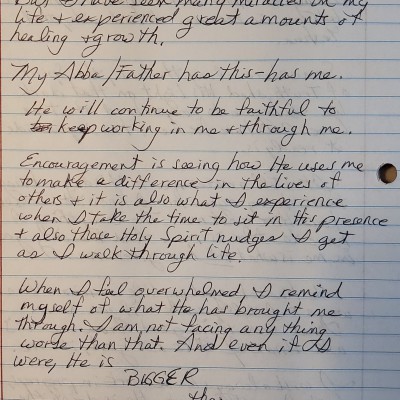 But I have seen many miracles in my
life + experienced great amounts of
healing + growth.
My Abba/Father has this - has me.
He will continue to be faithful to
keep working in me + through me.
Encouragement is seeing how He uses me
to make a difference in the lives of
others + it is also what I experience
when I take the time to sit in His presence
+ also those Holy Spirit nudges I get
as I walk through life.
When I feel overwhelmed, I remind
myself of what He has brought me
through. I am not facing any thing
worse than that. And even if I
were, He is
BIGGER